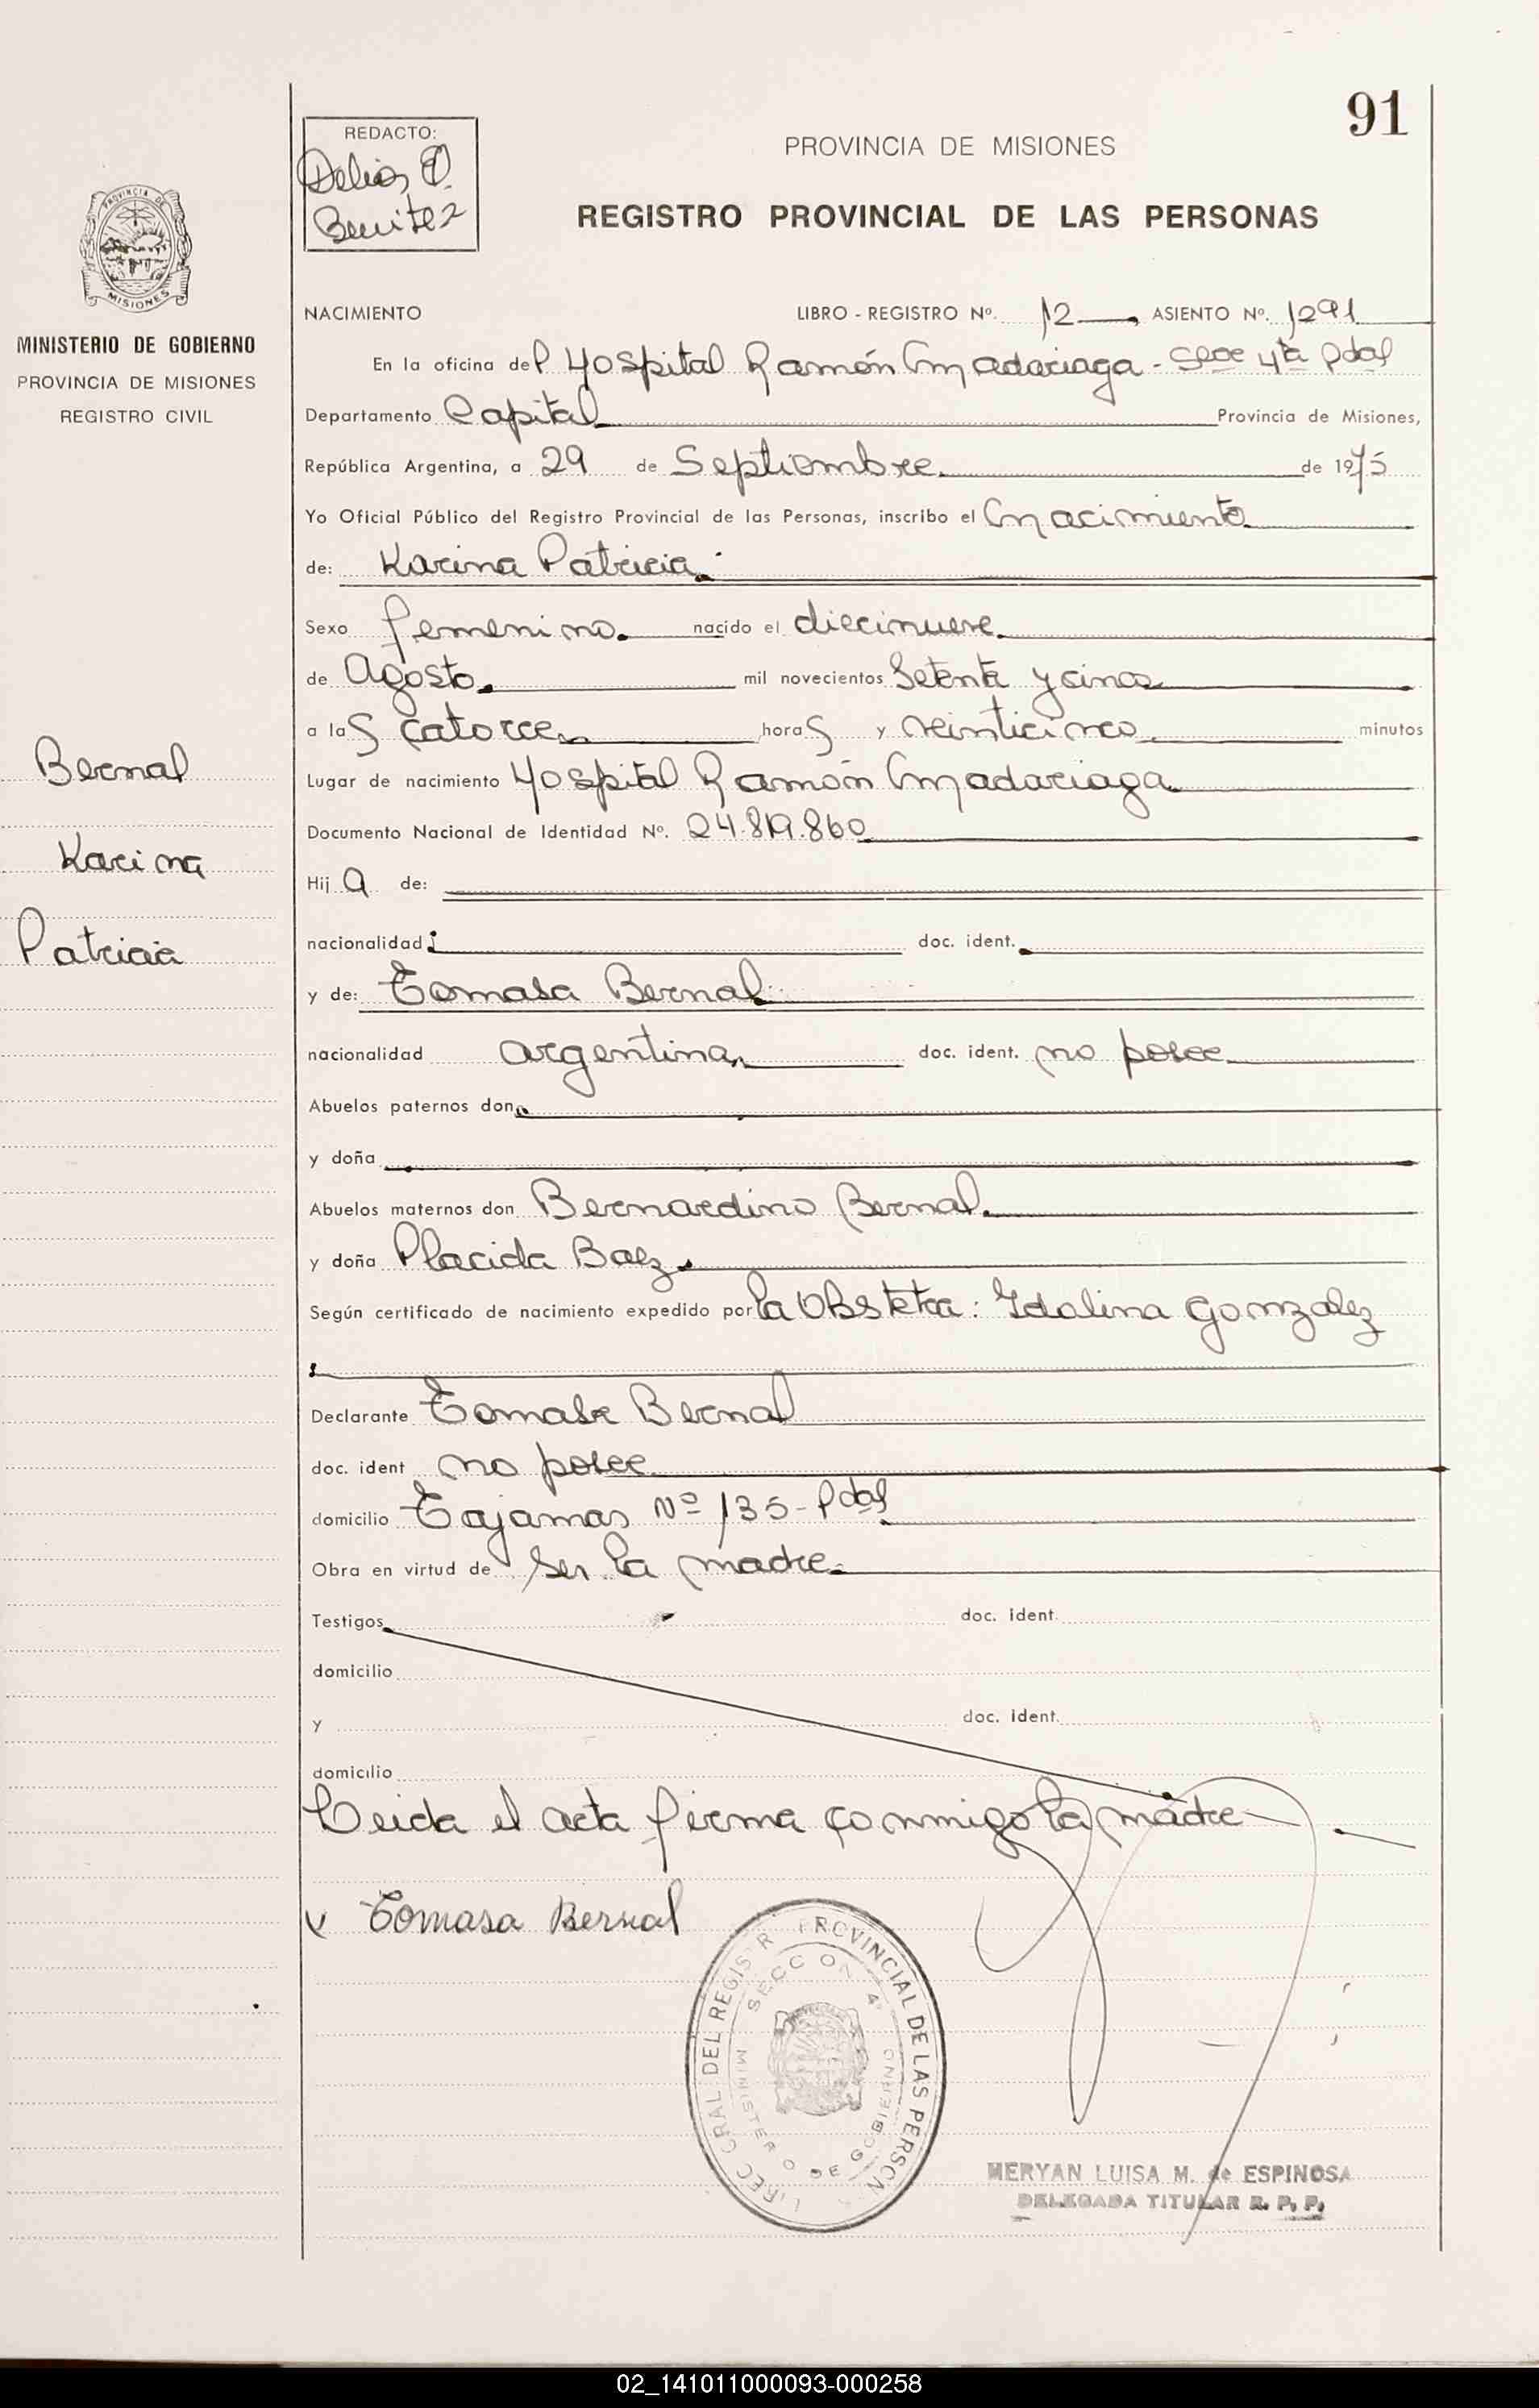 91
REDACTO:
Delia
Benitez
PROVINCIA DE MISIONES
REGISTRO PROVINCIAL DE LAS PERSONAS
PROVINCIA DE
MISIONES
MINISTERIO DE GOBIERNO
PROVINCIA DE MISIONES
REGISTRO CIVIL
Bernal
Karina
Patricia
NACIMIENTO LIBRO - REGISTRO Nº. 12 ASIENTO Nº. 1291
En la oficina del Hospital Ramón Madariaga - 4ta Pdas
Departamento Capital Provincia de Misiones,
República Argentina, a 29 de Septiembre de 1975
Yo Oficial Público del Registro Provincial de las Personas, inscribo el Nacimiento
de: Karina Patricia.
Sexo femenino. nacido el diecinueve
de Agosto. mil novecientos Setenta y cinco
a las catorce horas y veinticinco minutos
Lugar de nacimiento Hospital Ramón Madariaga
Documento Nacional de Identidad Nº. 24.819.860
Hija de:
nacionalidad doc. ident.
y de: Tomasa Bernal
nacionalidad argentina doc. ident. no posee
Abuelos paternos don
y doña
Abuelos maternos don Bernardino Bernal.
y doña Placida Baez
Según certificado de nacimiento expedido por la Obstetra: Idalina Gonzalez
Declarante Tomasa Bernal
doc. ident no posee
domicilio Tajamar Nº 135 - Pdas
Obra en virtud de ser la madre
Testigos doc. ident.
domicilio
y doc. ident.
domicilio
Leida el acta firma conmigo la madre
x Tomasa Bernal
PROVINCIAL DE LAS PERSON
MINISTERIO DE GOBIERNO
MERYAN LUISA M. de ESPINOSA
DELEGADA TITULAR R. P. P.
02_141011000093-000258